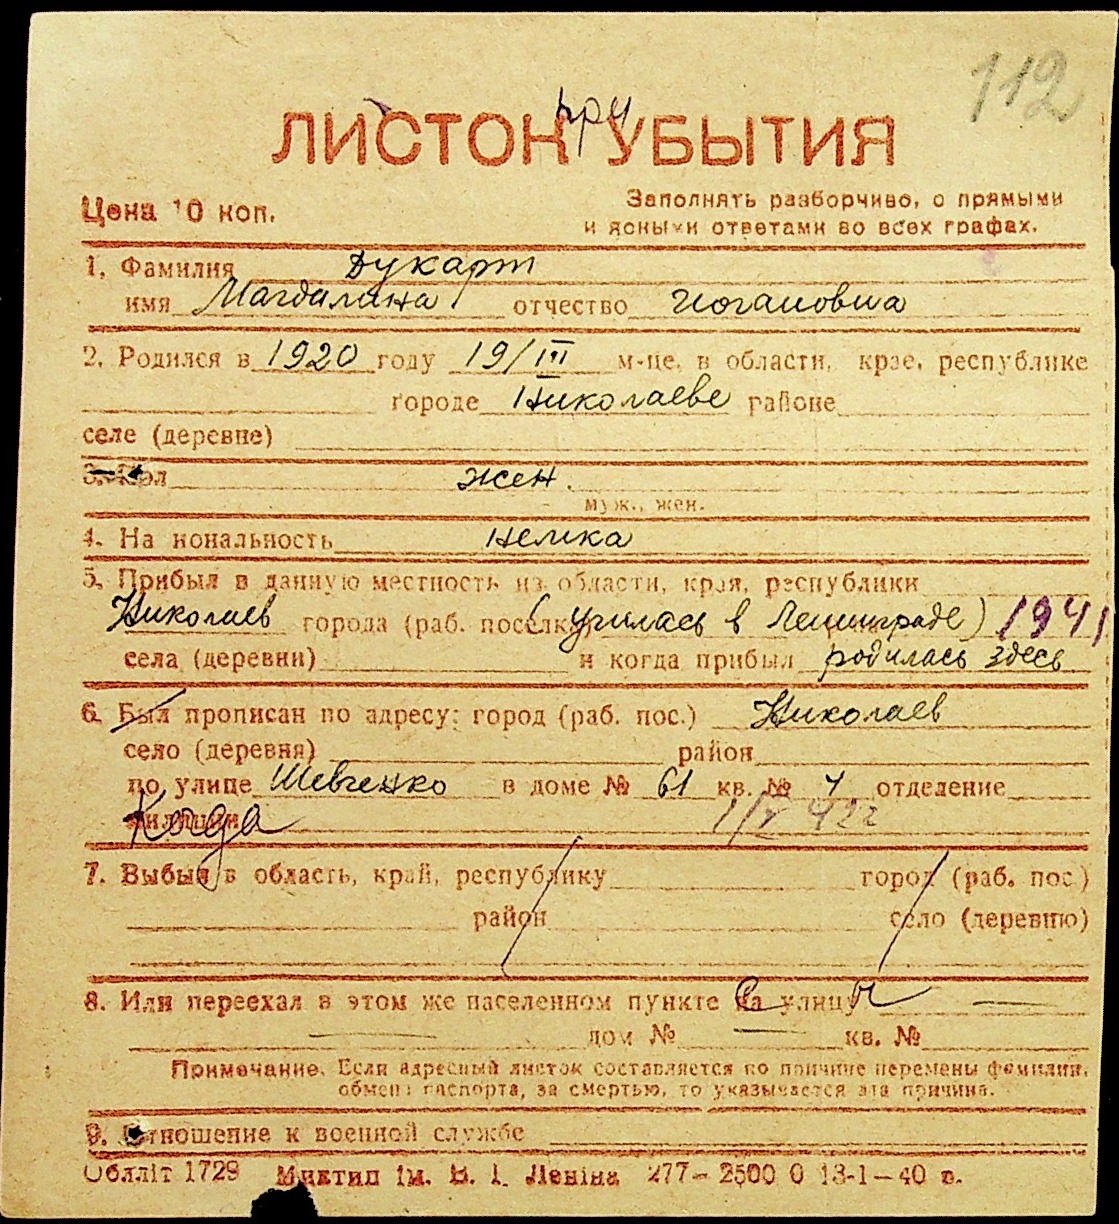 112
при
ЛИСТОК УБЫТИЯ
Цена 10 коп.
Заполнять разборчиво, с прямыми
и ясными ответами во всех графах.
1. Фамилия Дукарт
имя Магдалина отчество Иогановна
2. Родился в 1920 году 19/III м-це, в области, крае, республике
городе Николаеве районе
селе (деревне)
3. Пол жен.
муж., жен.
4. На иональность немка
5. Прибыл в данную местность из области, края, республики
Николаев города (раб. поселка) (училась в Ленинграде) 1941
села (деревни) и когда прибыл родилась здесь
6. Был прописан по адресу: город (раб. пос.) Николаев
село (деревня) район
по улице Шевченко в доме № 61 кв. № 4 отделение
милиции Когда 1/V 42г
7. Выбыл в область, край, республику город (раб. пос.)
район село (деревню)
8. Или переехал в этом же населенном пункте на улицу —
— дом № — кв. №
Примечание. Если адресный листок составляется по причине перемены фамилии,
обмена паспорта, за смертью, то указывается эта причина.
9. Отношение к военной службе
Облліт 1729 Миктип ім. В. І. Леніна 277—2500 0 13-1—40 р.